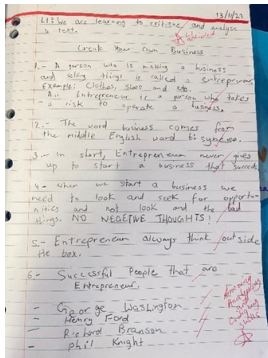 13/11/23
LI: We are learning to critique and analyse
a text.
Create Your Own Business
1. - A person who is making a business
and selling things is called a entreprenuer
Example: Clothes, shoes and etc.
A. Entreprenuer is a person who takes
a risk to operate a business.
2. - The word business comes from
the middle English word
3 - In short, Entrepreneum never gives
up to start a business that succeeds.
4 - when we start a business we
need to look and seek for opportu-
nities and not look and the bad
things. NO NEGETIVE THOUGHTS!
5 - Entreprenuer always think outside
the box.
6 - Successful People that are
Entrepreneur.
- George Washington
- Henry Ford
- Richard Branson
- Phil Knight
Amazing
Analysing
and
skills